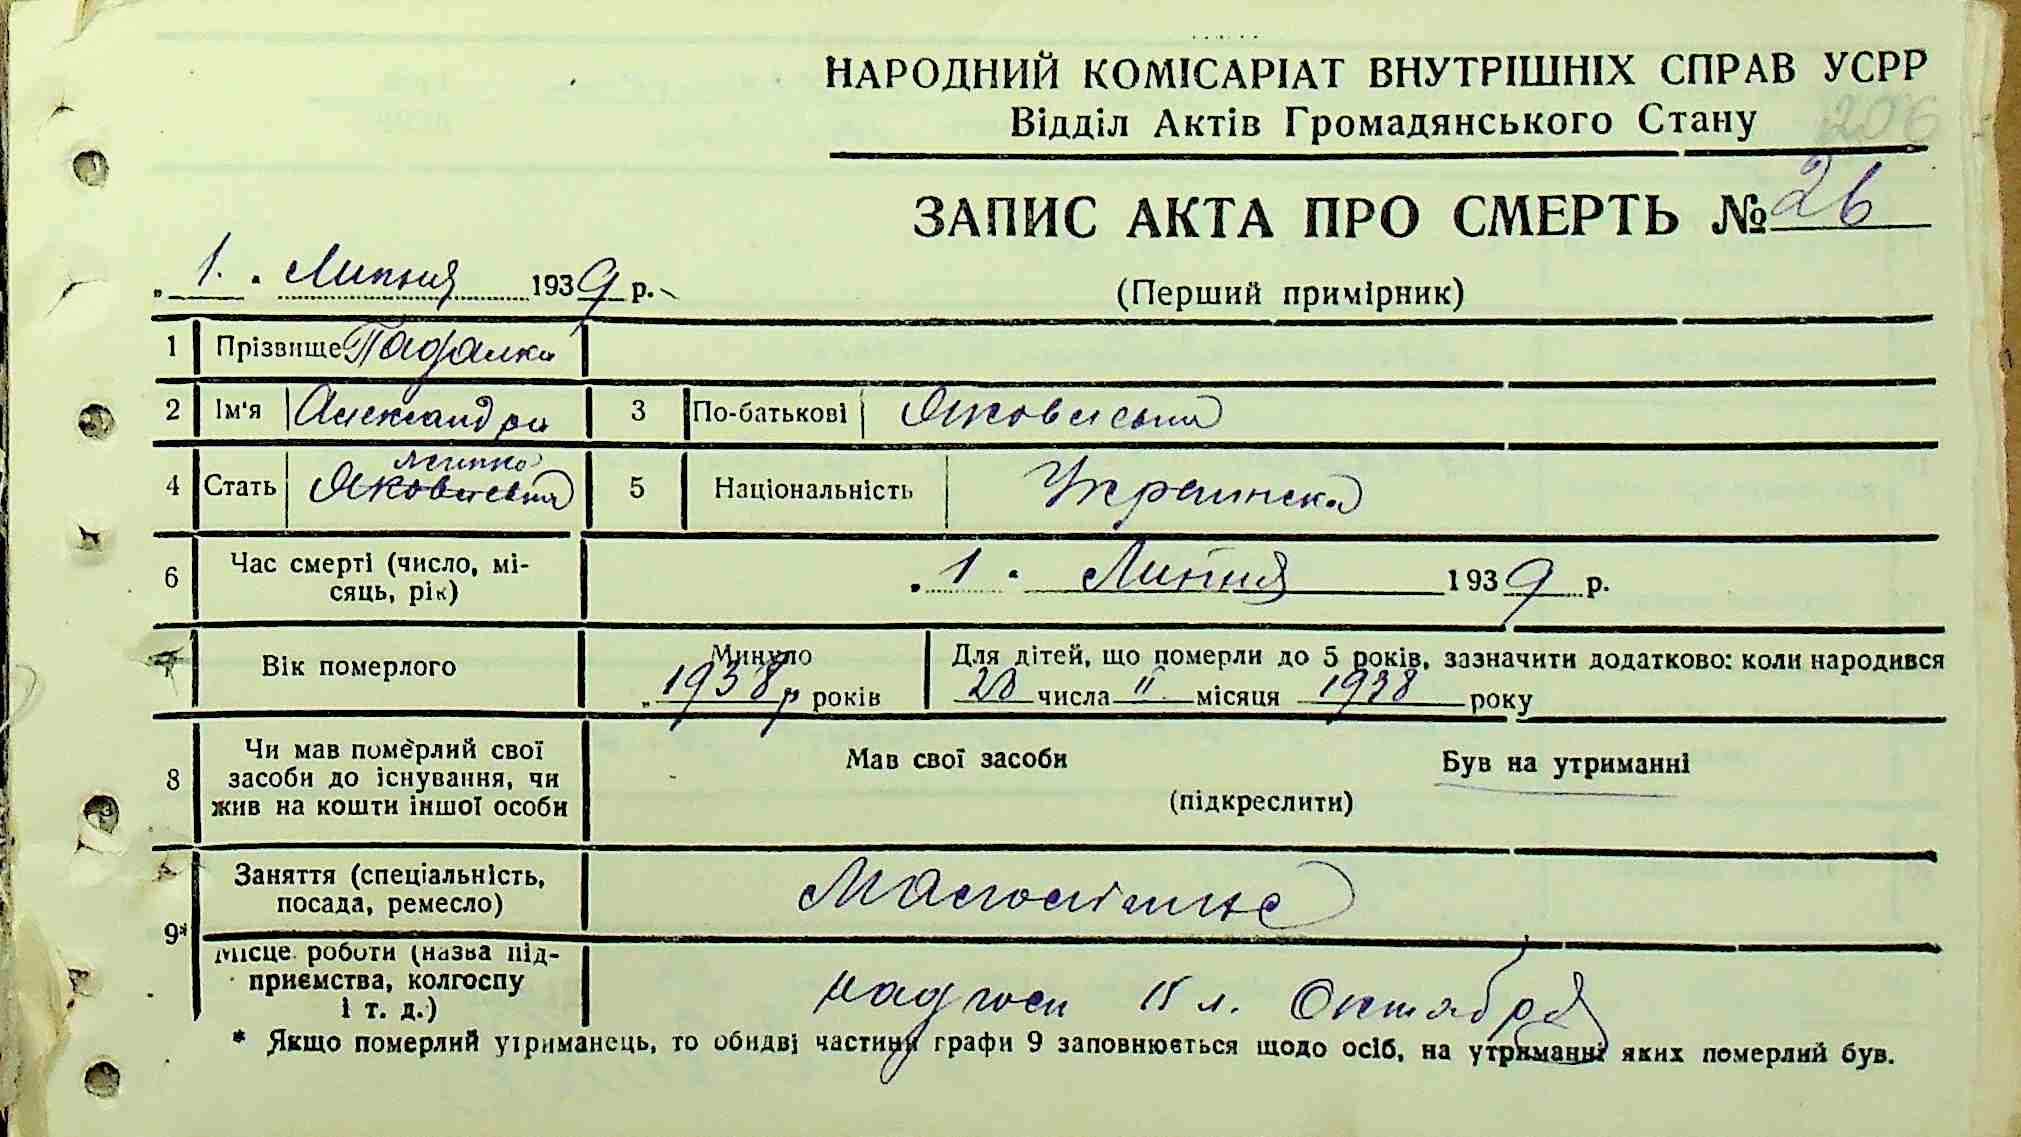 НАРОДНИЙ КОМІСАРІАТ ВНУТРІШНІХ СПРАВ УСРР
Відділ Актів Громадянського Стану
206
ЗАПИС АКТА ПРО СМЕРТЬ № 26
„ 1. " Липня 1939 р.
(Перший примірник)
1 Прізвище Падалка
2 Ім'я Александра 3 По-батькові Яковлевна
4 Стать Яковлевна 5 Національність Украинка
6 Час смерті (число, мі-
сяць, рік) „ 1 " Липня 1939 р.
7 Вік померлого Минуло „ 1938 р років
Для дітей, що померли до 5 років, зазначити додатково: коли народився
28 числа II місяця 1938 року
8 Чи мав померлий свої
засоби до існування, чи
жив на кошти іншої особи
Мав свої засоби Був на утриманні
(підкреслити)
9* Заняття (спеціальність,
посада, ремесло)
Місце роботи (назва під-
приємства, колгоспу
і т. д.)
Октября
* Якщо померлий утриманець, то обидві частини графи 9 заповнюється щодо осіб, на утриманні яких померлий був.